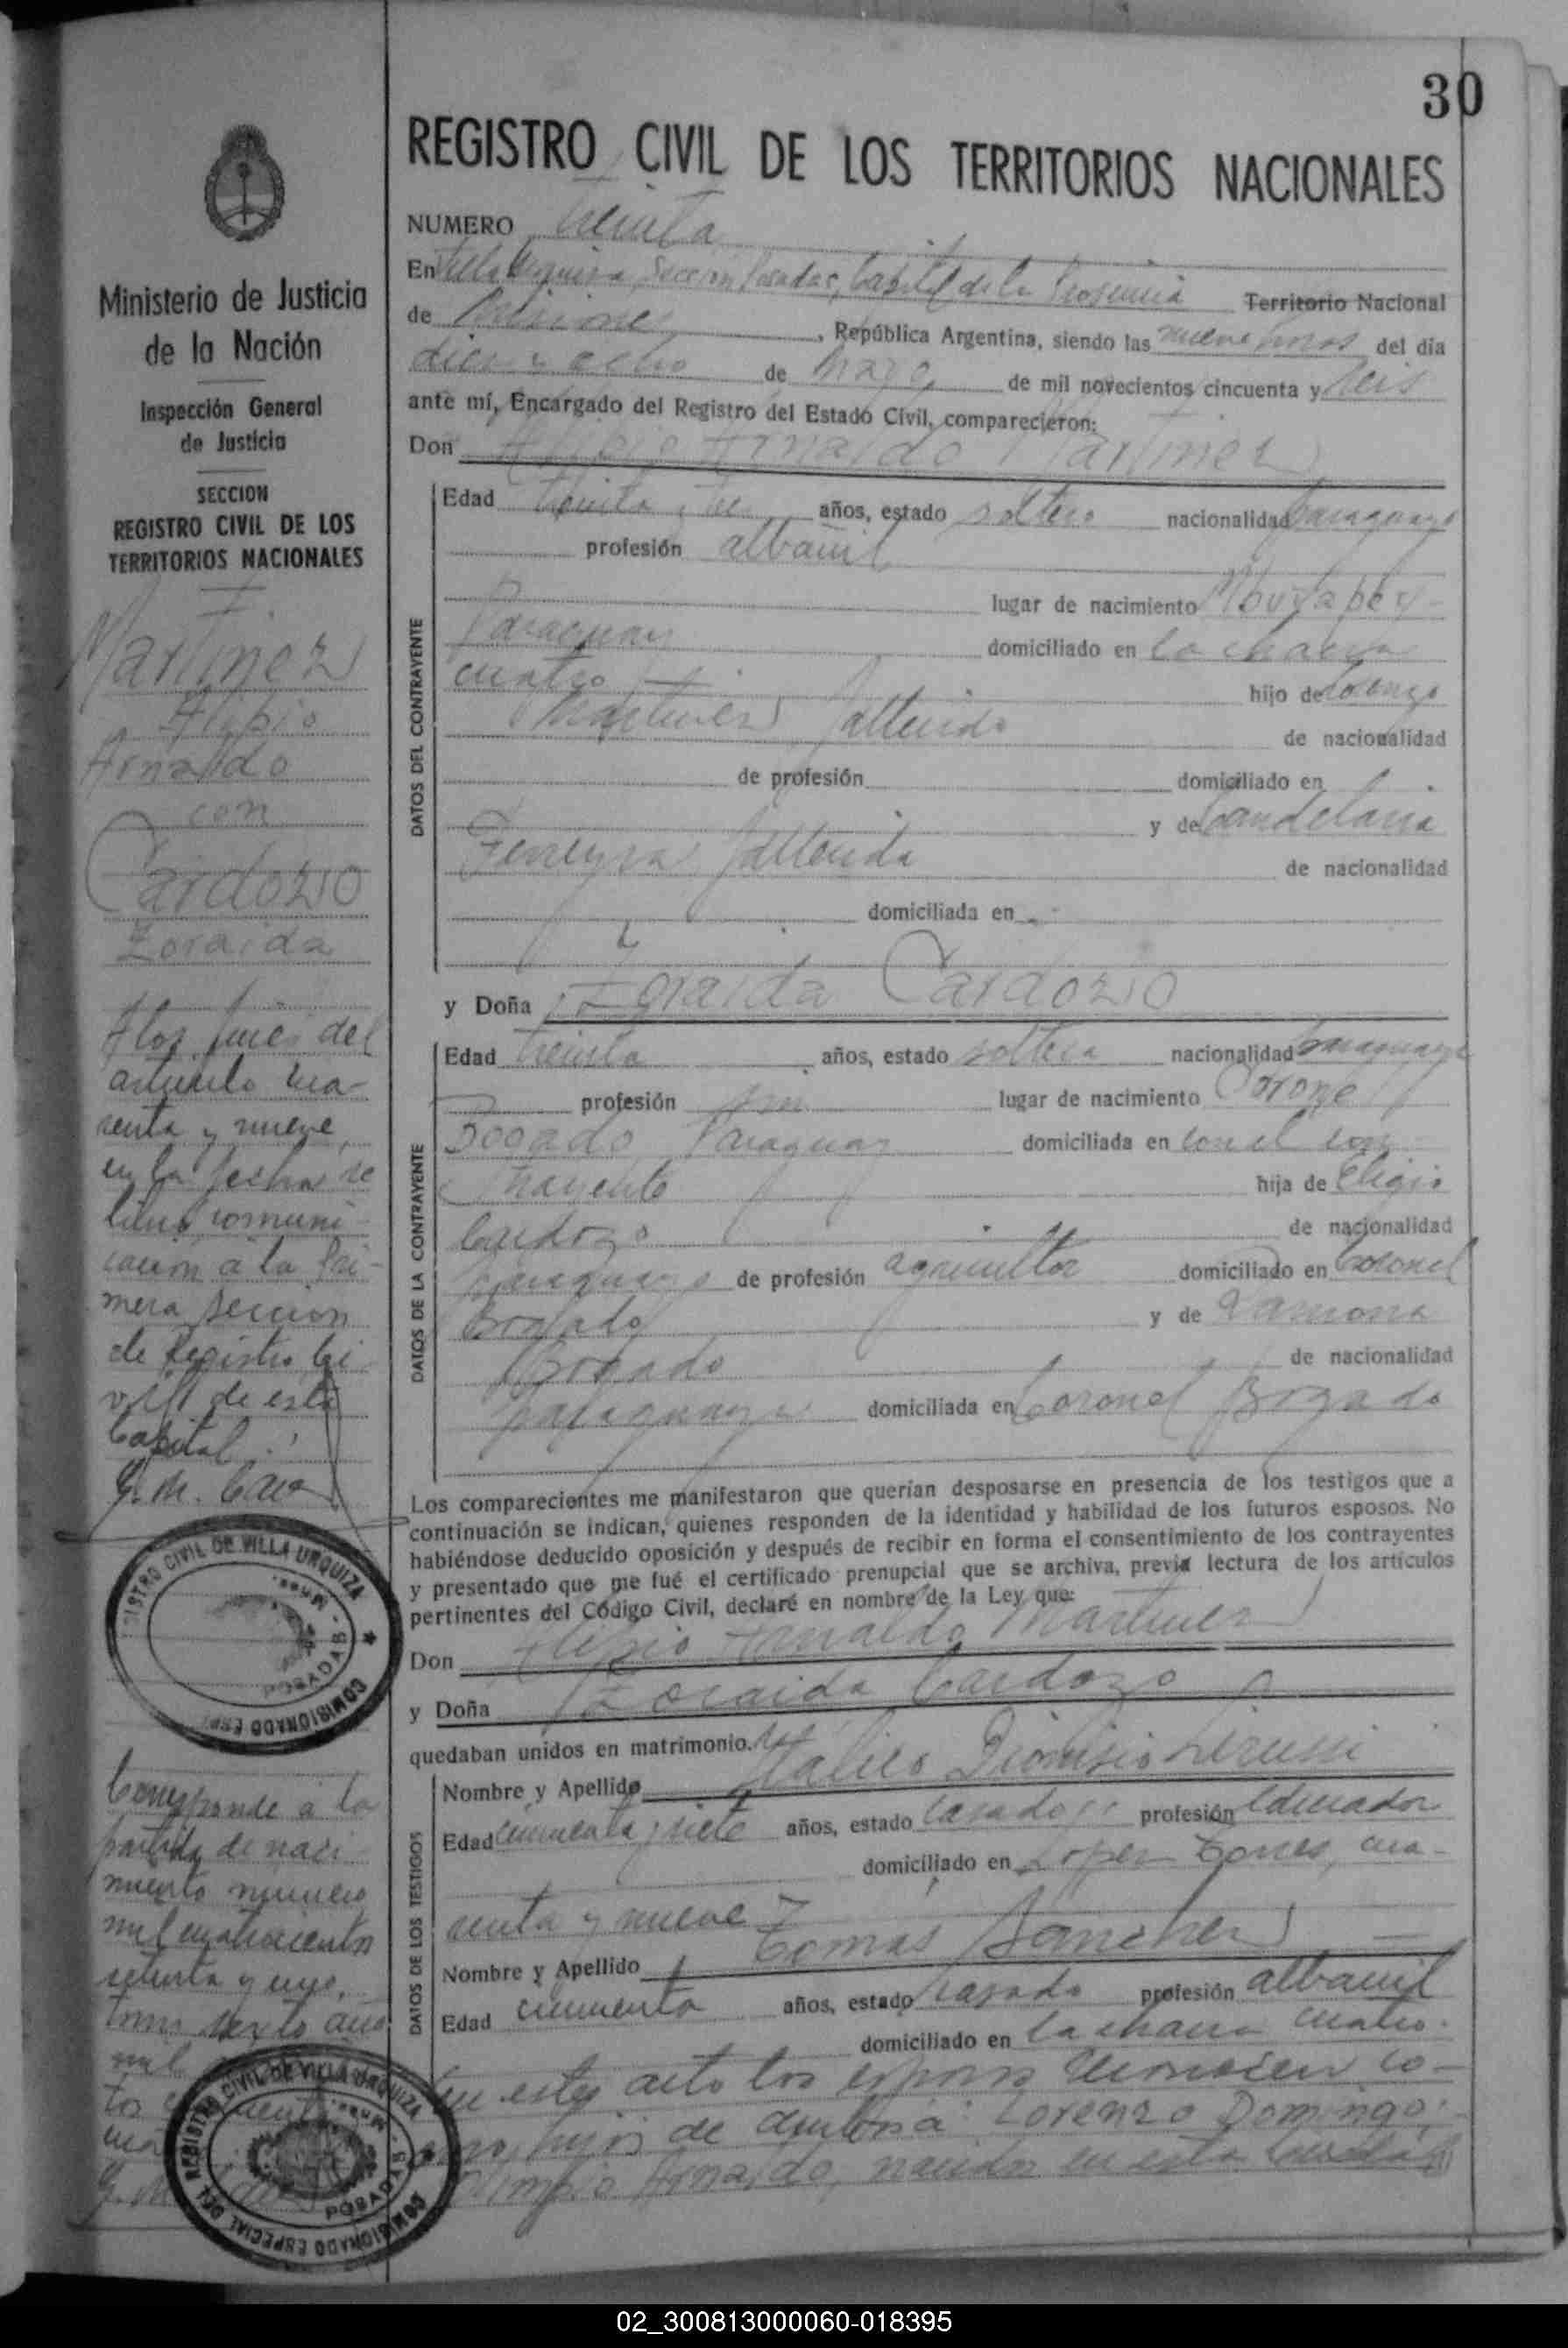 30
REGISTRO CIVIL DE LOS TERRITORIOS NACIONALES
NUMERO treinta
En Villa Urquiza, Sección Posadas, Capital de la Provincia Territorio Nacional
de Misiones, República Argentina, siendo las nueve horas del día
diez y ocho de Mayo de mil novecientos cincuenta y seis
ante mí, Encargado del Registro del Estado Civil, comparecieron:
Don Alipio Arnaldo Martinez
DATOS DEL CONTRAYENTE
Edad treinta y tres años, estado soltero nacionalidad paraguayo
profesión albañil
lugar de nacimiento Mbuyapey
Paraguay domiciliado en la chacra
cuatro hijo de Lorenzo
Martinez fallecido de nacionalidad
de profesión domiciliado en
y de Candelaria
Ferreyra fallecida de nacionalidad
domiciliada en
y Doña Zoraida Cardozo
DATOS DE LA CONTRAYENTE
Edad treinta años, estado soltera nacionalidad paraguaya
profesión lugar de nacimiento Coronel
Bogado Paraguay domiciliada en con el con-
trayente hija de Eligio
Cardozo de nacionalidad
paraguayo de profesión agricultor domiciliado en Coronel
Bogado y de Ramona
Bogado de nacionalidad
paraguaya domiciliada en Coronel Bogado
Los comparecientes me manifestaron que querían desposarse en presencia de los testigos que a
continuación se indican, quienes responden de la identidad y habilidad de los futuros esposos. No
habiéndose deducido oposición y después de recibir en forma el consentimiento de los contrayentes
y presentado que me fué el certificado prenupcial que se archiva, previa lectura de los artículos
pertinentes del Código Civil, declaré en nombre de la Ley que:
Don Alipio Arnaldo Martinez
y Doña Zoraida Cardozo
quedaban unidos en matrimonio.
DATOS DE LOS TESTIGOS
Nombre y Apellido Dionisio
Edad cincuenta y siete años, estado casado profesión educador
domiciliado en Lopez Torres, cua-
renta y nueve
Nombre y Apellido Tomas Sanchez
Edad cincuenta años, estado casado profesión albañil
domiciliado en la chacra cuatro.
En este acto los esposos reconocen co-
mo hijos de ambos a: Lorenzo Domingo;
Olimpio Arnaldo, nacidos en esta Ciudad
Ministerio de Justicia
de la Nación
Inspección General
de Justicia
SECCION
REGISTRO CIVIL DE LOS
TERRITORIOS NACIONALES
Martinez
Alipio
Arnaldo
con
Cardozo
Zoraida
A los fines del
artículo cua-
renta y nueve,
en la fecha se
libró comuni-
cación a la Pri-
mera Sección
de Registro Ci-
vil de esta
Capital.
REGISTRO CIVIL DE VILLA URQUIZA
POSADAS - Mnes.
COMISIONADO ESPECIAL
Corresponde a la
partida de naci-
miento número
mil cuatrocientos
setenta y uno,
tomo sexto año
mil
COMISIONADO ESPECIAL DEL REGISTRO CIVIL DE VILLA URQUIZA
POSADAS - Mnes.
02_300813000060-018395